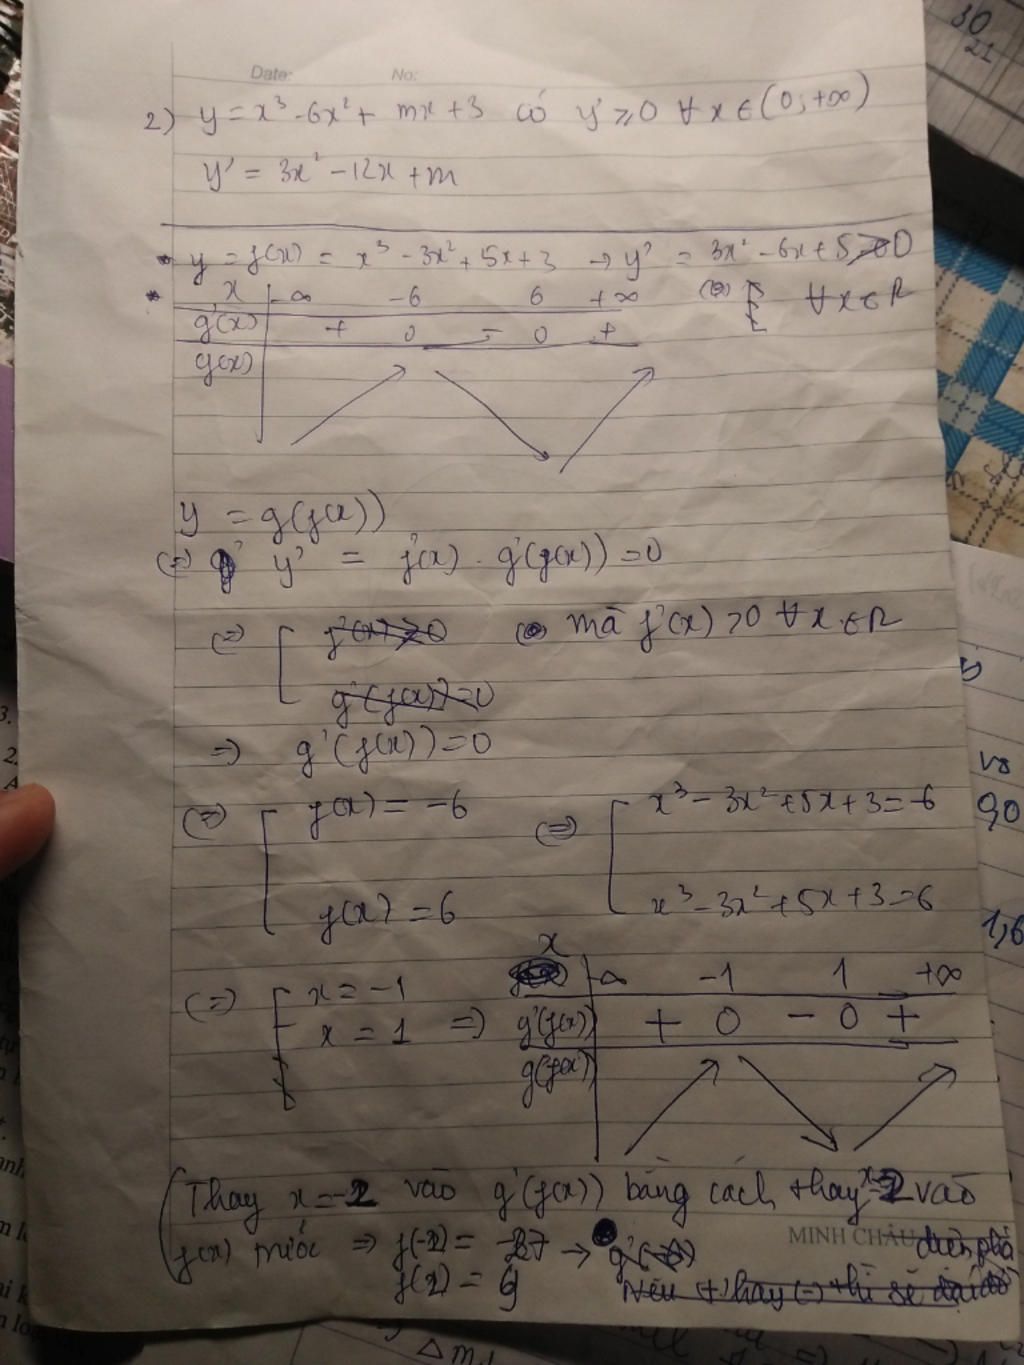 Date: No:
2) y = x³ - 6x² + mx + 3 có y' ⩾ 0 ∀x ∈ (0; +∞)
y' = 3x² - 12x + m
y = f(x) = x³ - 3x² + 5x + 3 → y' = 3x² - 6x + 5 > 0
x -∞ -6 6 +∞ ∀x ∈ R
g'(x) + 0 - 0 +
g(x)
y = g(f(x))
(=) y' = f'(x) . g'(f(x)) = 0
(=) [ f'(x) > 0 mà f'(x) > 0 ∀x ∈ R
g'(f(x)) = 0
=) g'(f(x)) = 0
(=) [ f(x) = -6 (=) [ x³ - 3x² + 5x + 3 = -6
f(x) = 6 x³ - 3x² + 5x + 3 = 6
x
(=) [ x = -1 -∞ -1 1 +∞
x = 1 =) g'(f(x)) + 0 - 0 +
g(f(x))
(Thay x = -2 vào g'(f(x)) bằng cách thay x = 2 vào
f(x) trước => f(-2) = -27 → g'
MINH CHÂU
f(2) = 9
Δm
30
21
vs
90
1,6